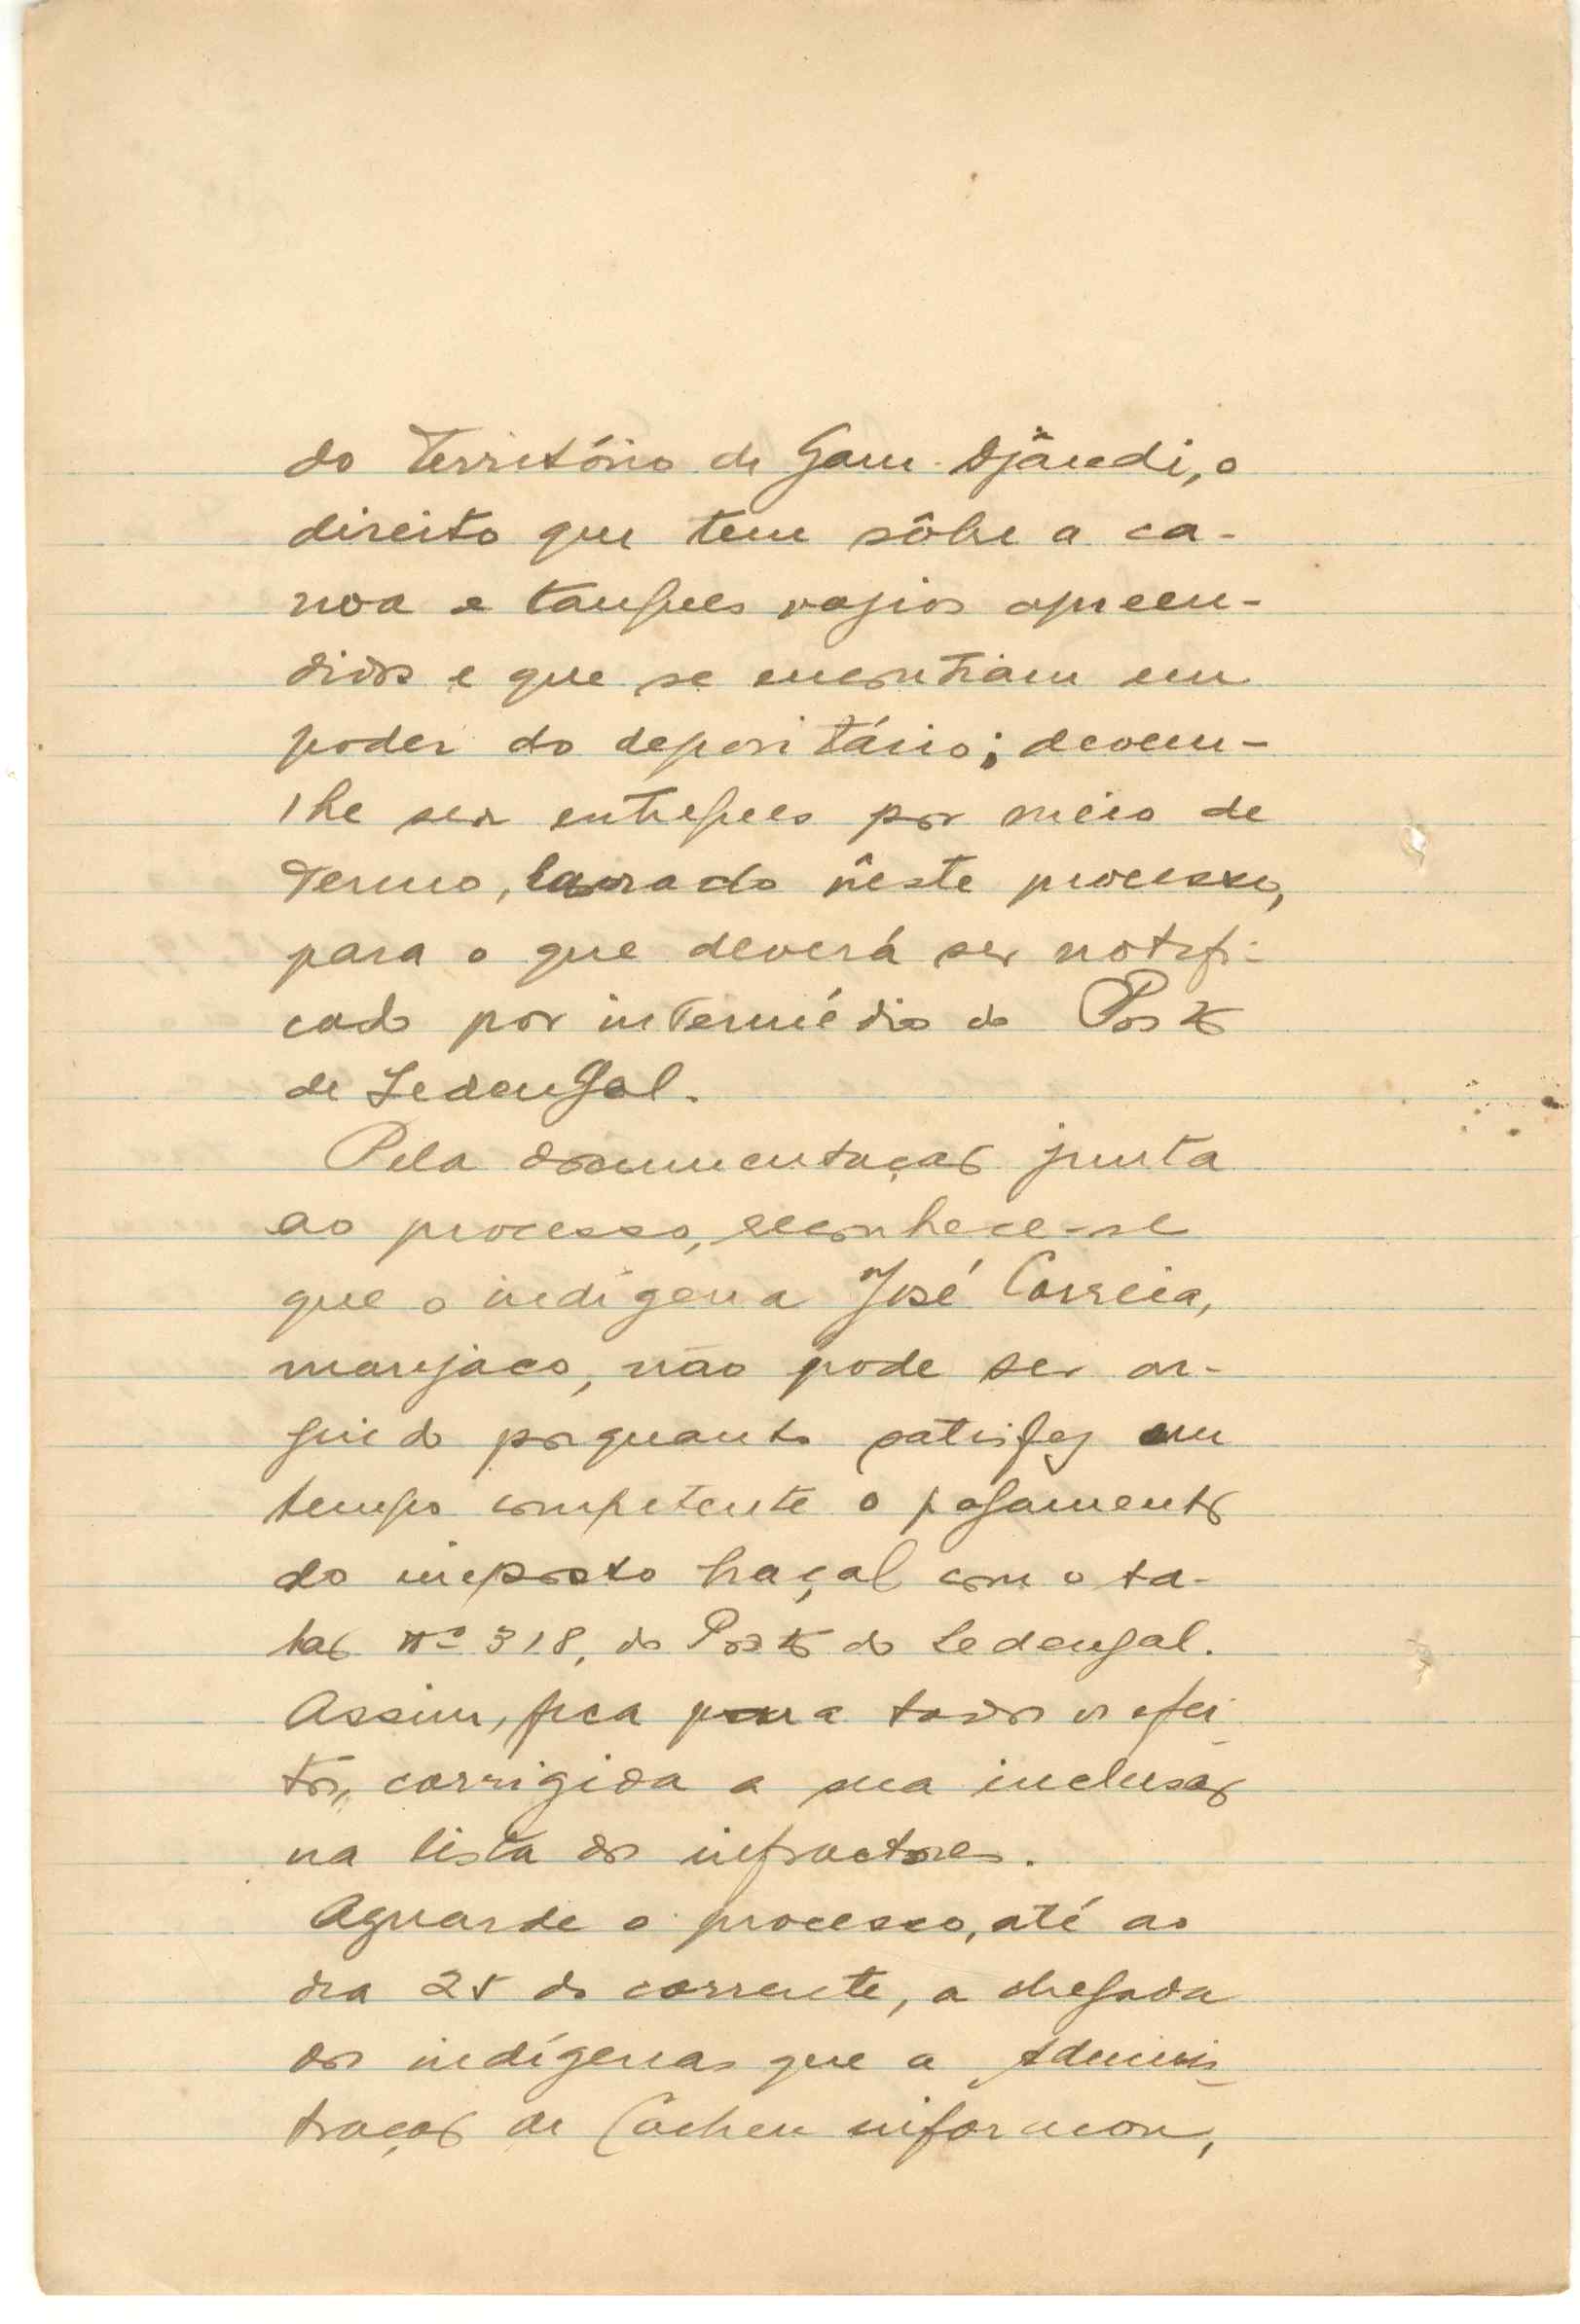 do Território de Gam-Djândi, o
direito que tem sôbre a ca-
noa e tanques vasios apreen-
didos e que se encontram em
poder do depositário; devem-
lhe ser entregues por meio de
Termo, lavrado nêste processo,
para o que deverá ser notifi-
cado por intermédio do Posto
de Sedengal.
Pela documentação junta
ao processo, reconhece-se
que o indígena José Correia,
manjaco, não pode ser ar-
guido porquanto satisfez em
tempo competente o pagamento
do imposto braçal com o ta-
lão nº 318, do Posto de Sedengal.
Assim, fica para todos os efei-
tos, corrigida a sua inclusão
na lista dos infractores.
Aguarde o processo, até ao
dia 25 do corrente, a chegada
dos indígenas que a Adminis-
tração de Cacheu informou,